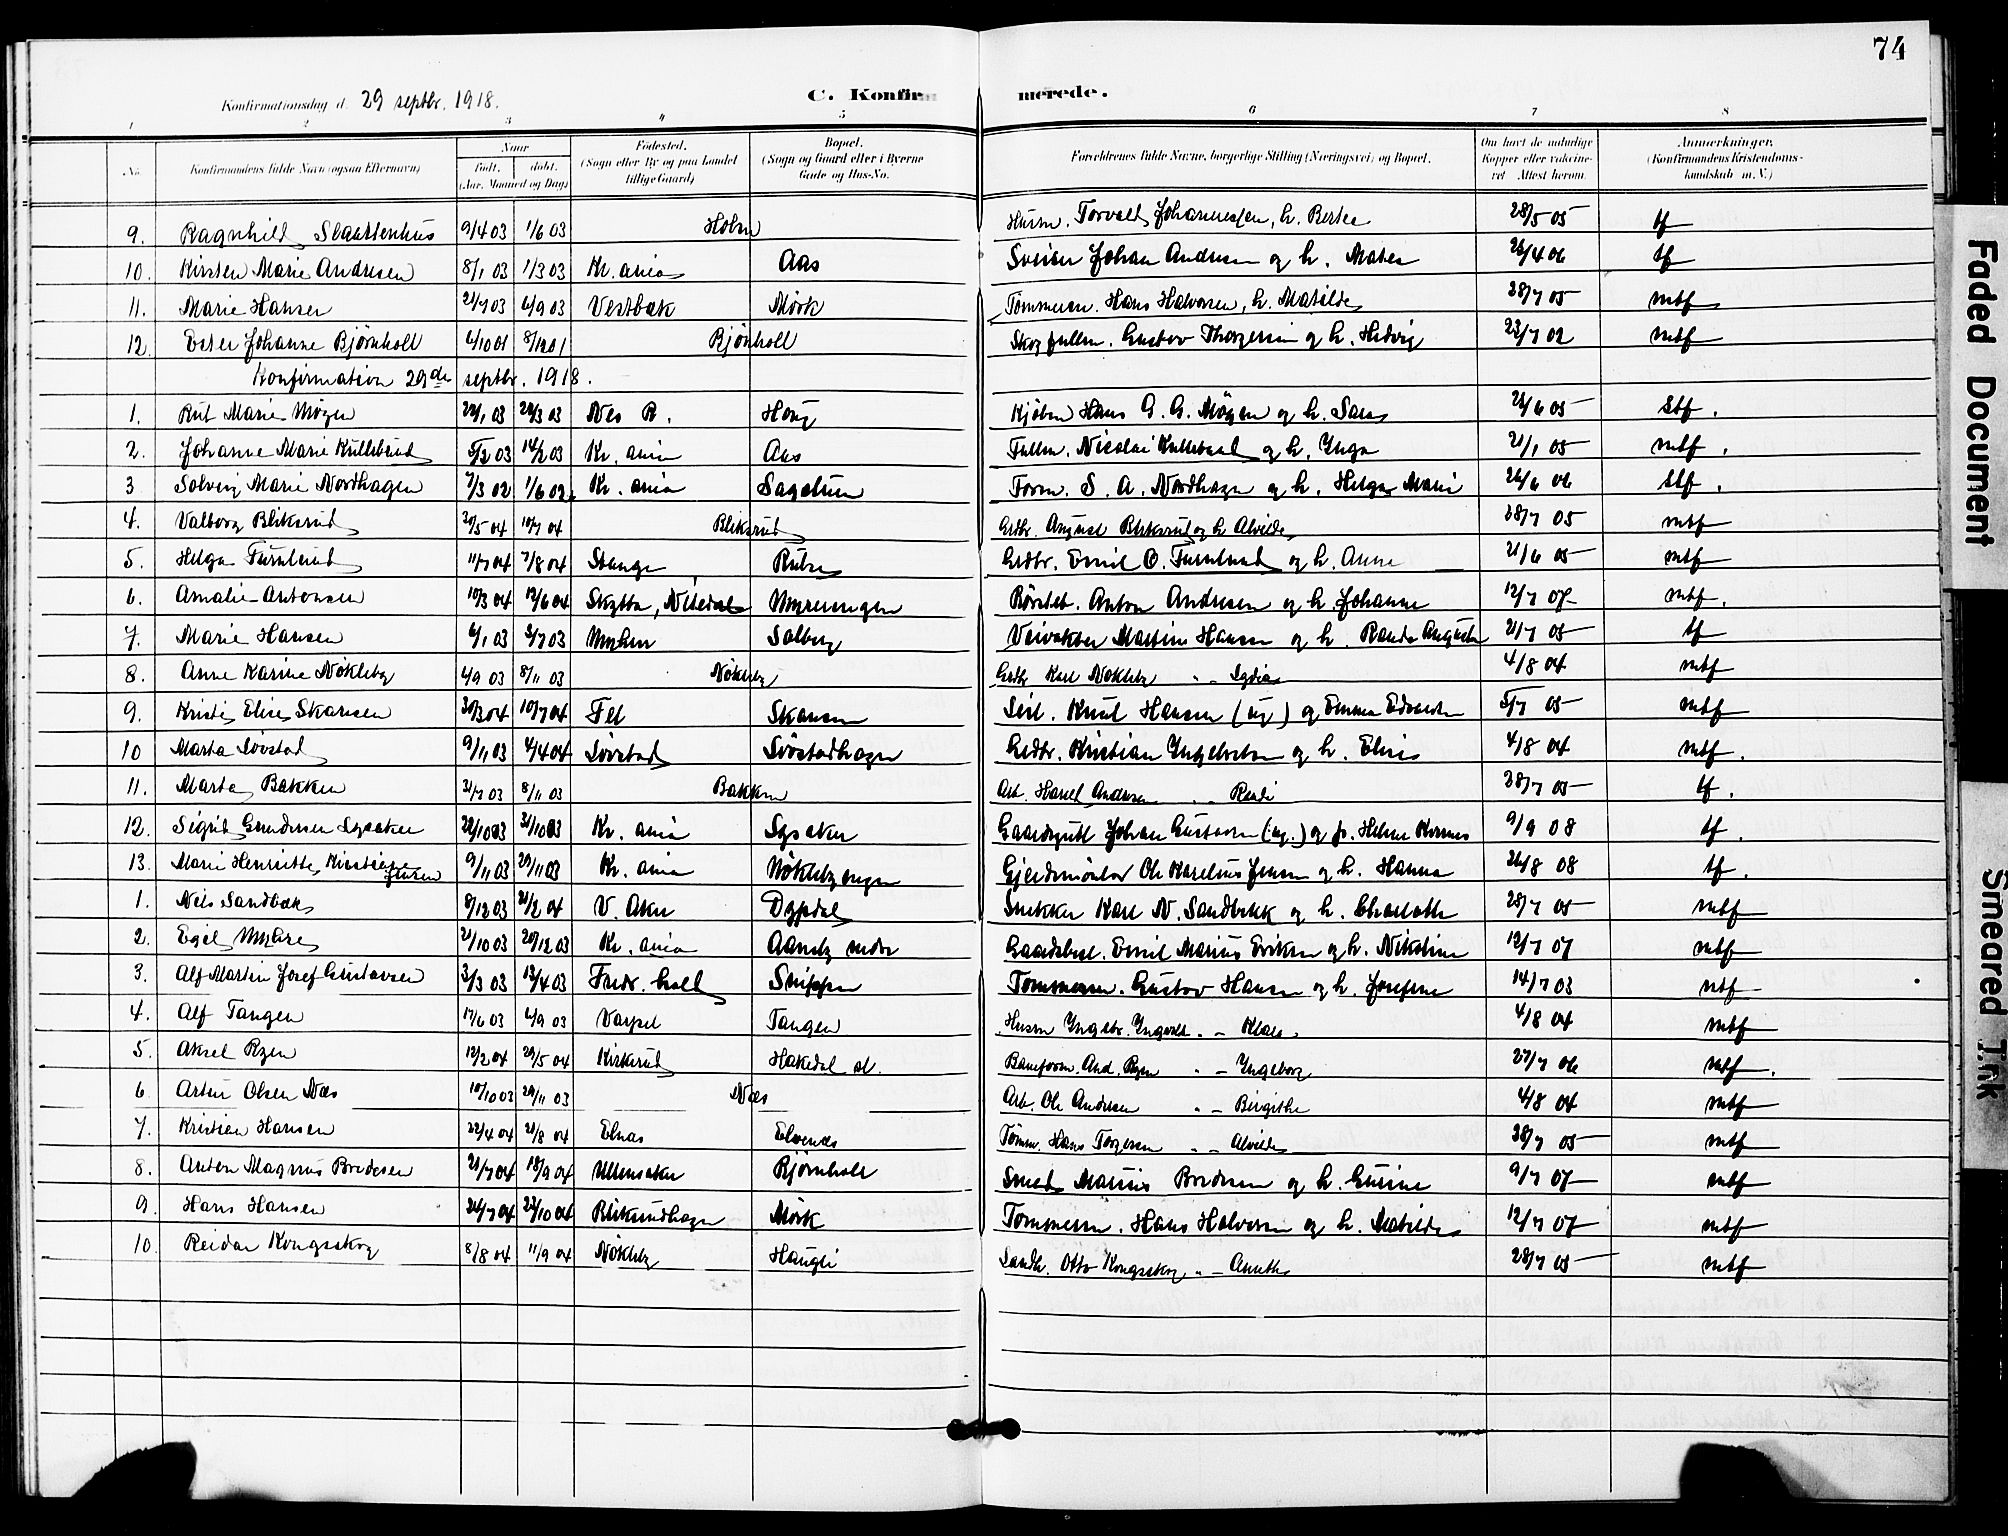 74
Konfirmationsdag d. 29 septbr. 1918. C. Konfirmerede.
1 2 3 4 5 6 7 8
No. Konfirmandens fulde Navn (ogsaa Efternavn) Naar Født. døbt. (Aar, Maaned og Dag) Fødested. (Sogn eller By og paa Landet tillige Gaard) Bopæl. (Sogn og Gaard eller i Byerne Gade og Hus-No. Forældrenes fulde Navne, borgerlige Stilling (Næringsvei) og Bopæl. Om havt de naturlige Kopper eller vaccineret. Attest herom. Anmærkninger. (Konfirmandens Kristendomskundskab m. V.)
9. Ragnhild Slaattenhus 9/4 03 1/6 03 Holm Husm. Torvald Johannessen, h. Bertea 28/5 05 tf
10. Kirsten Marie Andresen 8/1 03 1/3 03 Kr.ania Aas Sveiser Johan Andresen og h. Matea 26/4 06 tf
11. Marie Hansen 21/7 03 6/9 03 Vestbæk Mørk Tømmerm. Hans Halvorsen, h. Matilde 28/7 05 mtf
12. Ester Johanne Bjørnholt 6/10 01 8/12 01 Bjørnholt Skogfuldm. Gustav Thorgersen og h. Hedvig 23/7 02 mtf
Konfirmation 29de septbr. 1918.
1. Rut Marie Møgen 22/1 03 22/3 03 Nes R. Haug Kjøbm Hans G. G. Møgen og h. Sara 26/6 05 stf.
2. Johanne Marie Kullebund 5/2 03 14/2 03 Kr.ania Aas Fullm. Nicolai Kullebund og h. Inga 21/1 05 mtf.
3 Solveig Marie Nordhagen 7/3 02 1/6 02 Kr.ania Sagstuen Form. S. A. Nordhagen og h. Helga Marie 26/6 06 stf.
4. Valborg Bliksrud 30/5 04 10/7 04 Bliksrud Grdbr. August Bliksrud og h Alvilde 28/7 05 mtf
5. Helga Furulund 11/7 04 7/8 04 Stange Rutre Grdbr. Emil O. Furulund og h. Anne 21/6 05 mtf
6. Amalie Antonsen 10/3 04 12/6 04 Skytta, Nitedal Myrerengen Rørsteb. Anton Andresen og h. Johanne 12/7 07 mtf.
7. Marie Hansen 6/1 03 5/7 03 Myhrer Solberg Veivokter Martin Hansen og h. Randa Augusta 21/7 05 tf
8. Anne Karine Nøkleby 4/9 03 8/11 03 Nøkleby Grdbr Karl Nøkleby " - Lydia 4/8 04 mtf
9. Kristi Elise Skansen 30/3 04 10/7 04 Fet Skansen Seil. Knut Hansen (ug) og Emma Edvardsen 5/7 05 mtf
10 Marta Løvstad 9/11 03 4/4 04 Løvstad Løvstadhagen Grdbr. Kristian Ingebretsen og h. Elise 4/8 04 mtf.
11. Marta Bakken 31/7 03 8/11 03 Bakken Arb. Harald Andersen " - Randi 28/7 05 tf.
12. Sigrid Gundersen Lysaker 22/10 03 31/10 03 Kr.ania Lysaker Gaardsgutt Johan Gustavsen (ug.) og p. Helene Kværnes 9/9 08 tf.
13. Marie Henriette Kirstine Jensen 9/11 03 29/11 03 Kr.ania Nøklebyengen Gjerdsmontør Ole Karelius Jensen og h. Hanna 26/8 08 tf.
1. Nils Sandbæk 8/12 03 21/2 04 V. Aker Dypdal Snekker Karl N. Sandbekk og h. Charlotte 28/7 05 mtf
2. Egil Myhre 21/10 03 20/12 03 Kr.ania Aaneby nedre Gaardsbest. Emil Marius Eriksen og h. Nikoline 12/7 07 mtf
3. Alf Martin Josef Gustavsen 3/3 03 13/4 03 Fredr. hald Snippen Tømmerm. Gustav Hansen og h. Josefine 14/7 03 mtf
4. Alf Tangen 17/6 03 6/9 03 Varpet Tangen Husm Ingebr. Ingvald. " - Klara 4/8 04 mtf
5. Aksel Ryen 12/2 04 29/5 04 Kirkerud Hakedal st. Baneform. And. Ryen " - Ingeborg 27/7 06 mtf.
6 Artur Olsen Næs 10/10 03 29/11 03 Næs Arb. Ole Andresen " - Birgithe 4/8 04 mtf
7. Kristian Hansen 22/4 04 21/8 04 Elnæs Elvenæs Tømm. Hans Torgersen " - Alvilde 28/7 05 mtf
8. Anton Magnus Bredesen 21/7 04 18/9 04 Ullensaker Bjørnholt Smed Marius Bredesen og h. Gusine 9/7 07 mtf
9. Hans Hansen 24/7 04 23/10 04 Bliksrudhagen Mørk Tømmerm. Hans Halvorsen og h. Matilde 12/7 07 mtf
10. Reidar Kongsskog 8/8 04 11/9 04 Nøkleby Haugli Landh. Otto Kongsskog " - Anette 28/7 05 mtf
Faded Document
Smeared Ink